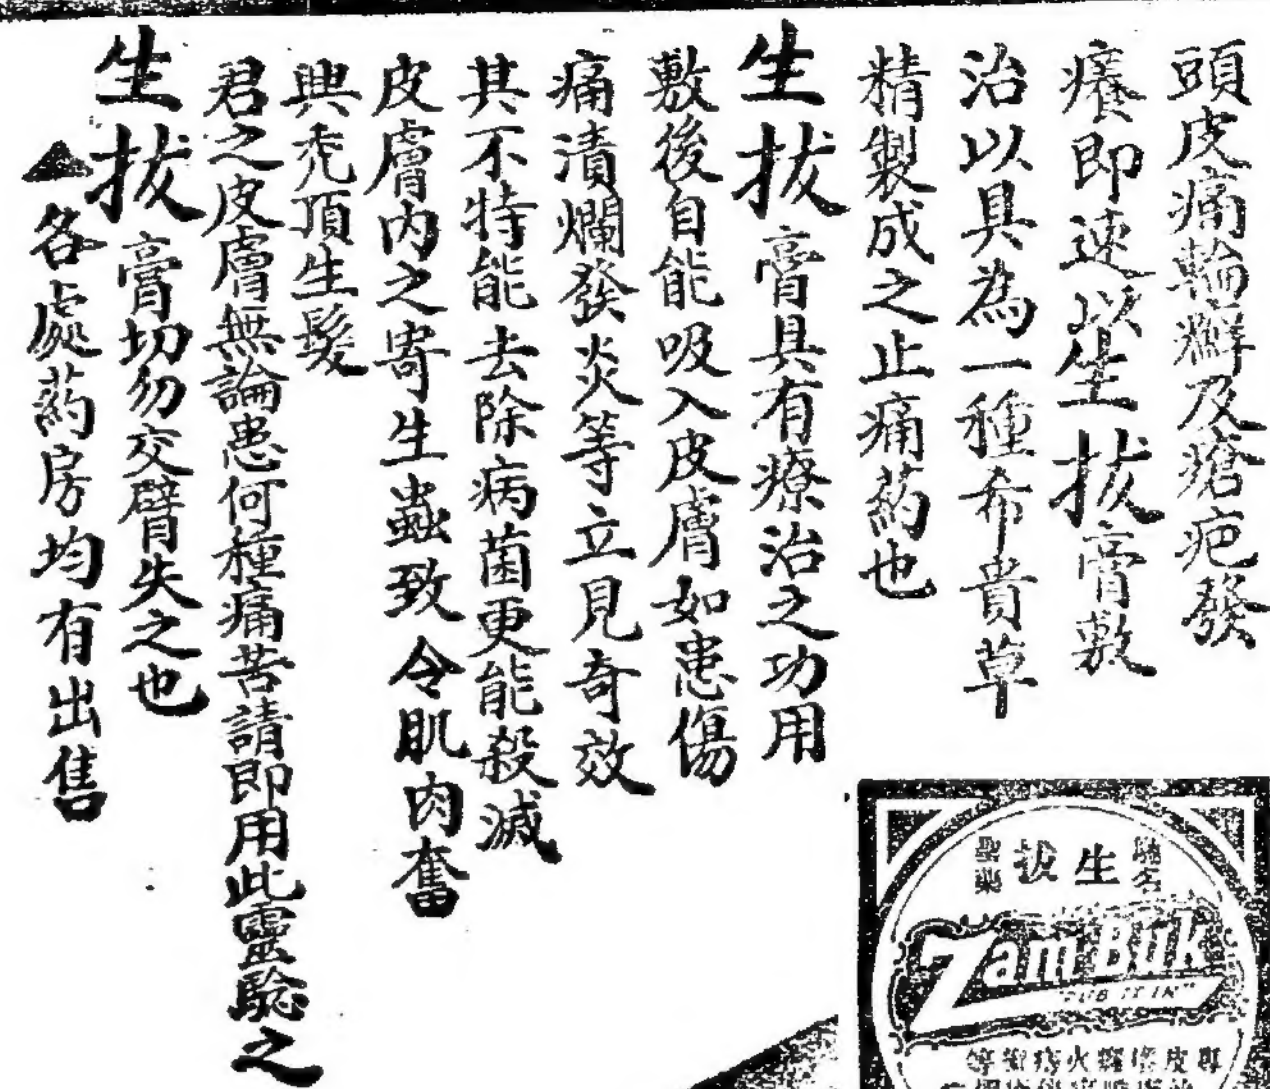 頭皮痛輪癬及瘡疤發
癢即速以生拔膏敷
治以具為一種希貴草
精製成之止痛葯也
生拔膏具有療治之功用
敷後自能吸入皮膚如患傷
痛潰爛發炎等立見奇效
其不特能去除病菌更能殺滅
皮膚內之寄生蟲致令肌肉奮
興禿頂生髮
君之皮膚無論患何種痛苦請即用此靈驗之
生拔膏切勿交臂失之也
▲各處葯房均有出售
馳名
生拔
聖藥
Zam-Buk
"RUB IT IN"